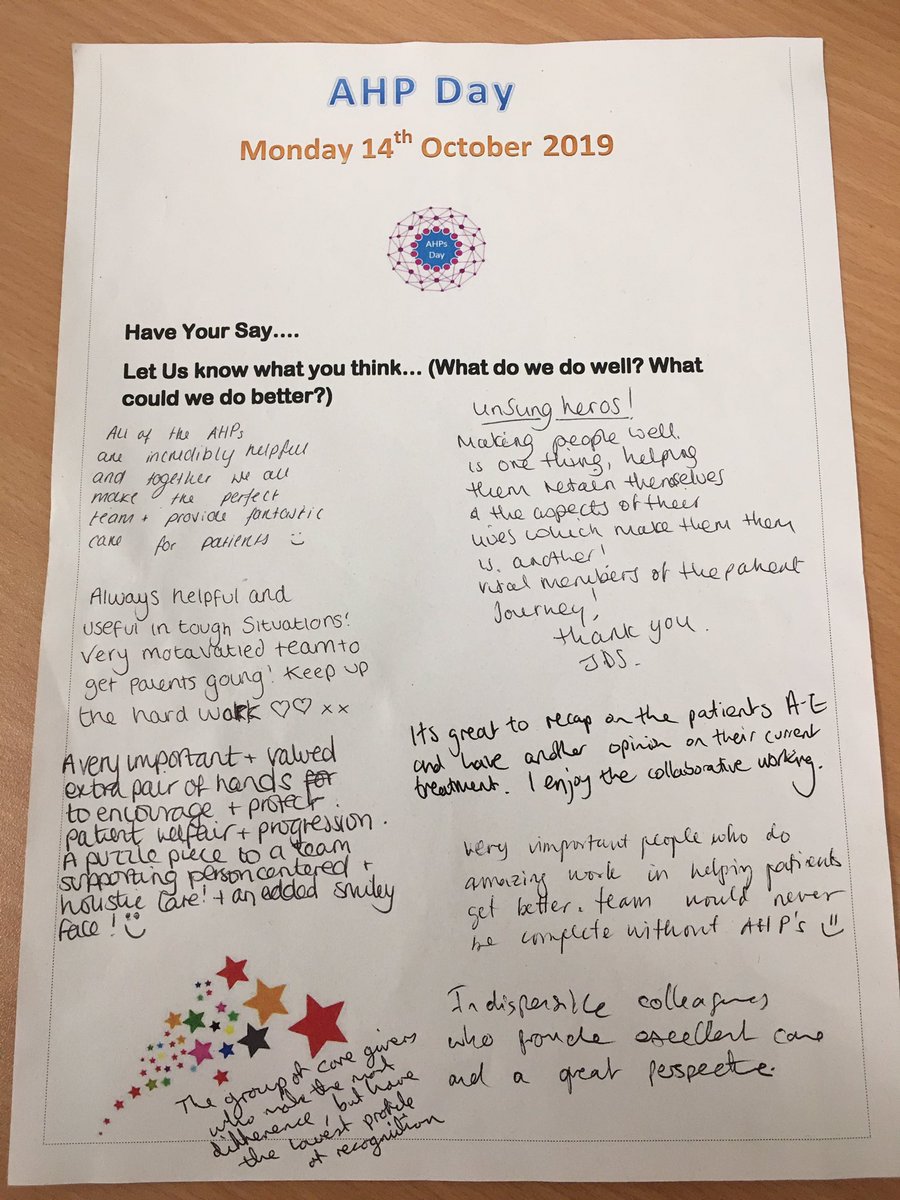 AHP Day
Monday 14th October 2019
AHPs
Day
Have Your Say....
Let Us know what you think... (What do we do well? What
could we do better?)
All of the AHPs
are incredibly helpful
and together we all
make the perfect
team + provide fantastic
care for patients
Always helpful and
useful in tough Situations!
Very motavatied team to
get patents going! Keep up
the hard work ♡♡ x x
A very important + valued
extra pair of hands for
to encourage + protect
patient welfair + progression.
A puzzle piece to a team
supporting person centered +
holistic care! + an added smiley
face!
Unsung heros!
Making people well
is one thing, helping
them retain themselves
& the aspects of their
lives which make them them
is another!
vital members of the patient
Journey!
thank you.
JDS.
Its great to recap on the patients A-E
and have another opinion on their current
treatment. I enjoy the collaborative working.
very important people who do
amazing work in helping patients
get better. team would never
be complete without AHP's
Indispensible colleagues
who provide excellent care
and a great perspective.
The group of care givers
who make the most
difference, but have
the lowest profile
of recognition